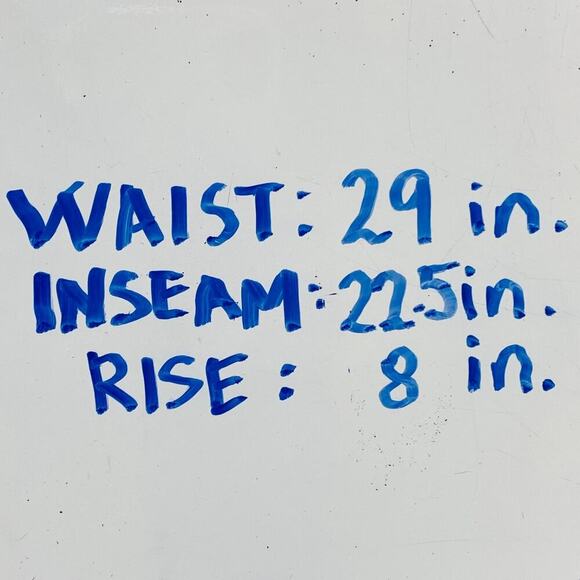 WAIST: 29 in.
INSEAM: 22.5in.
RISE: 8 in.